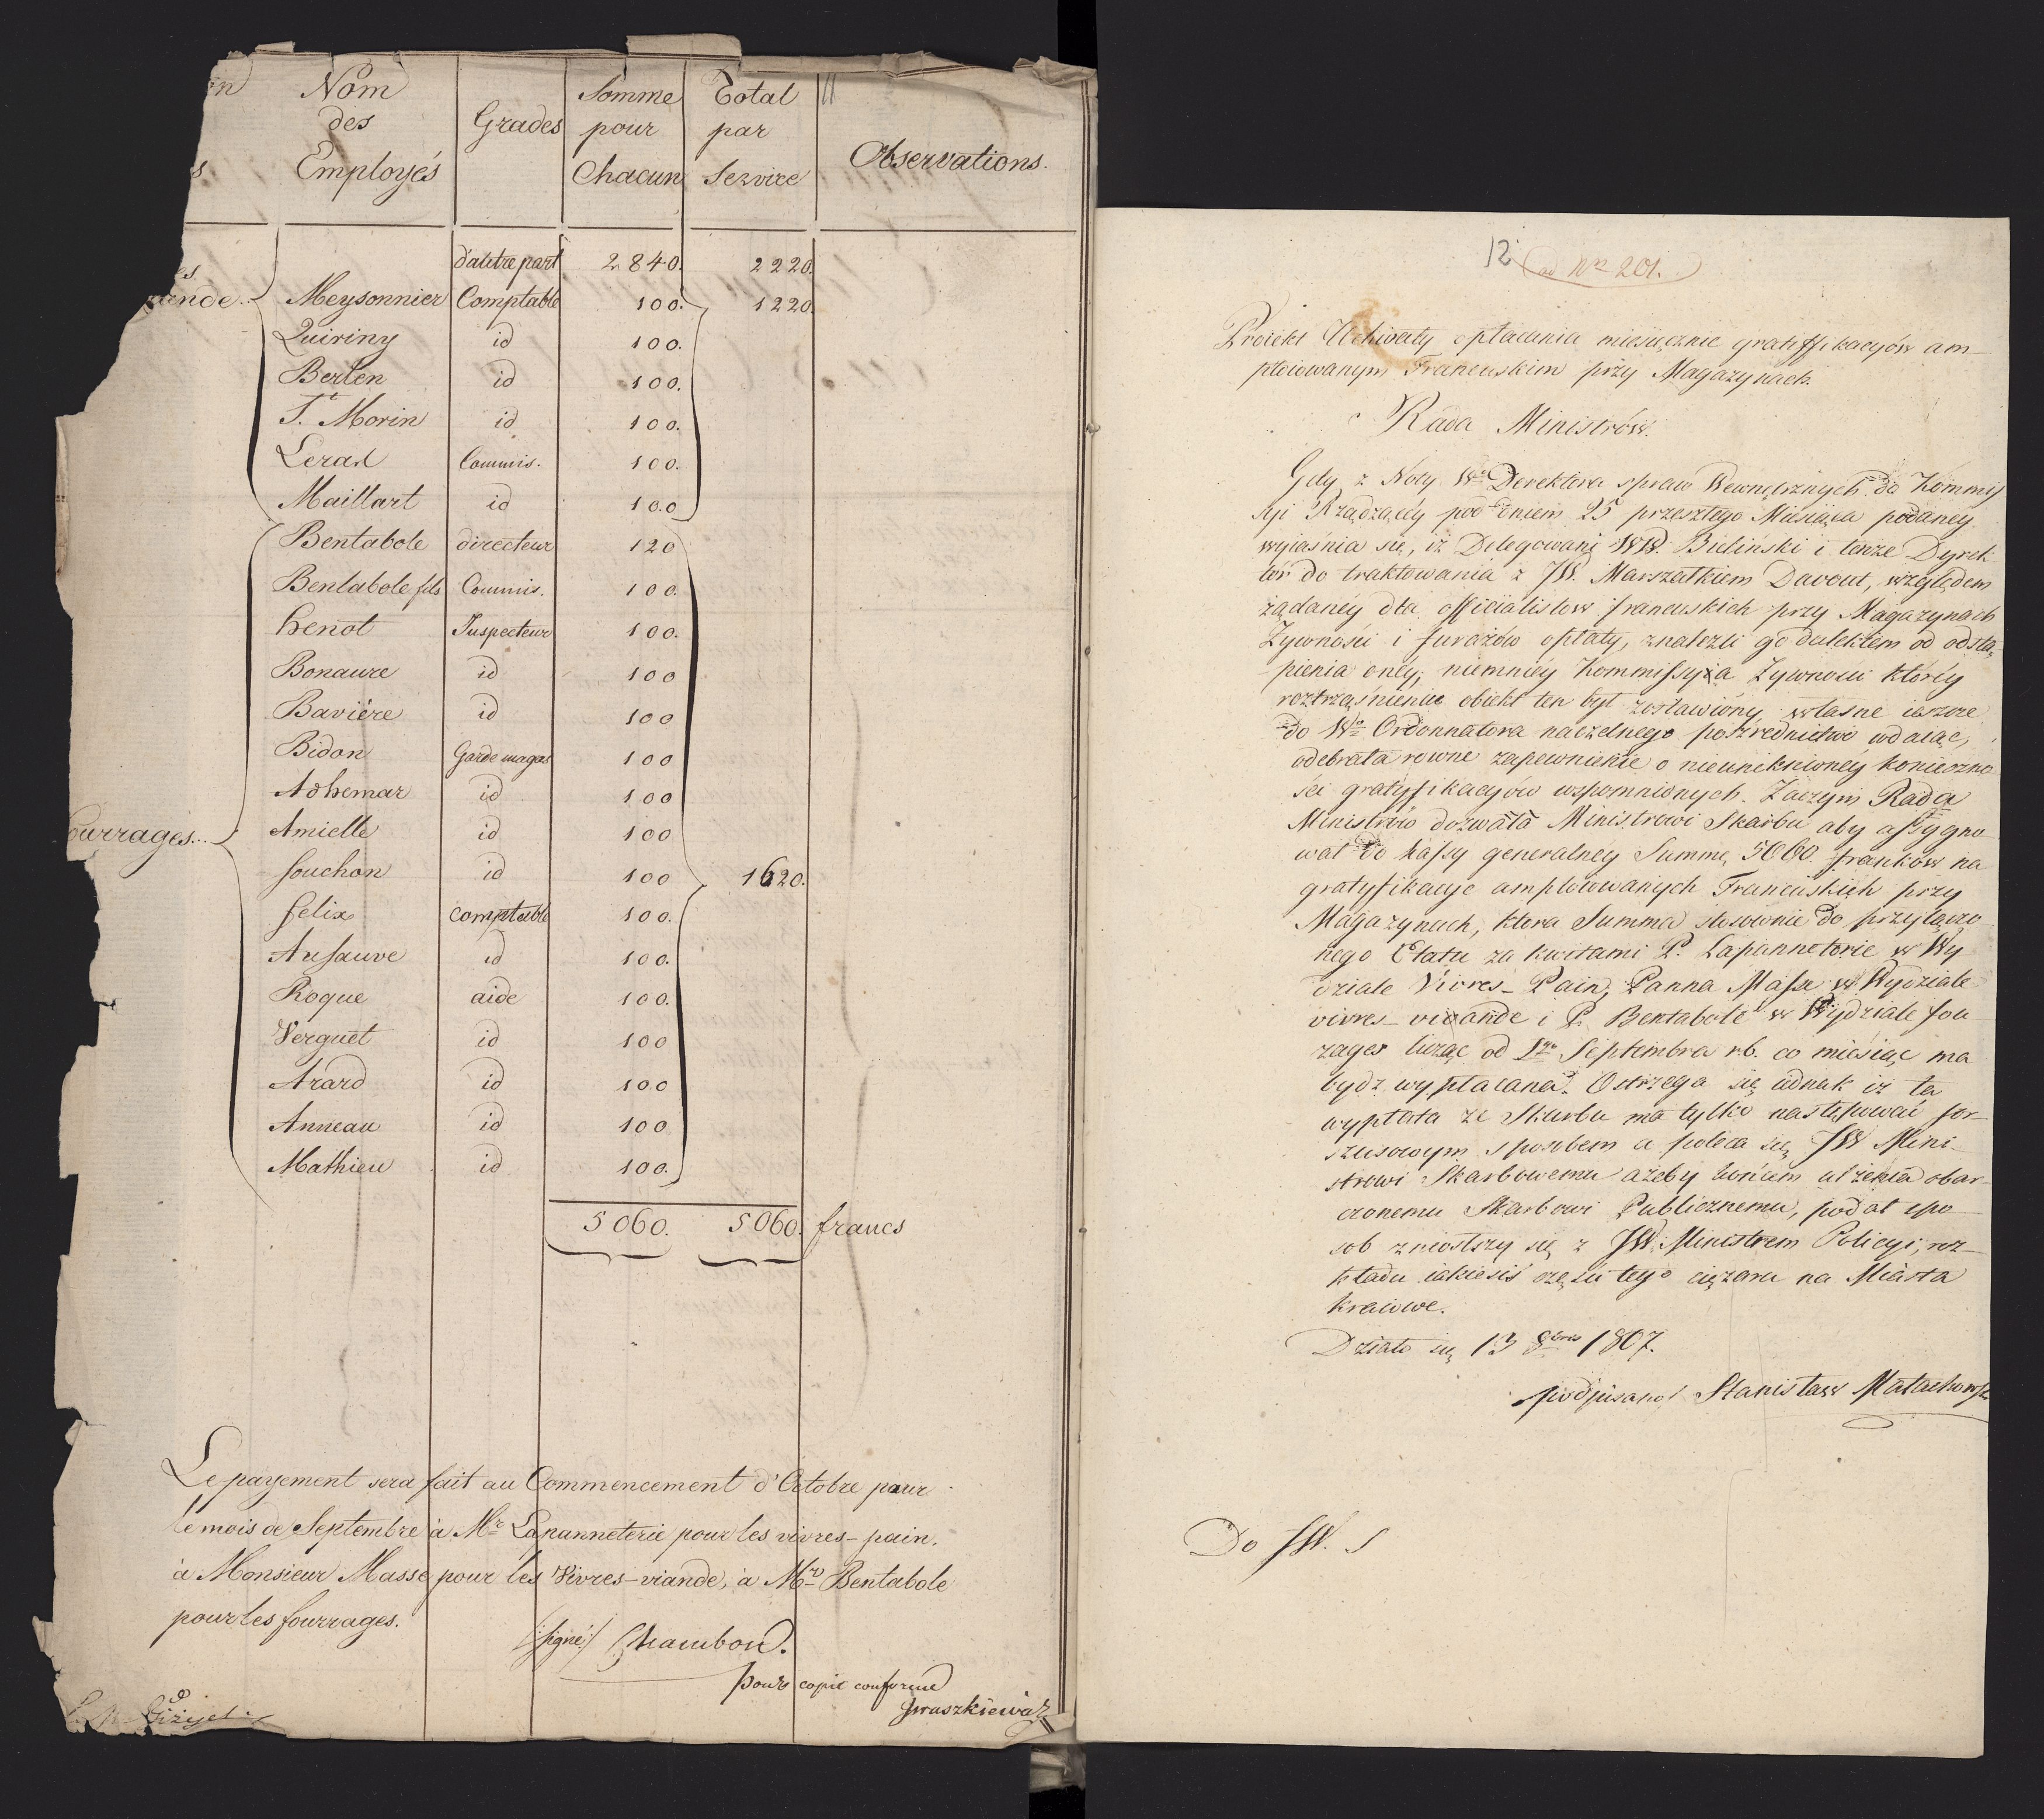 Nom des Employés | Grades | Somme pour Chacun | Total par Service | Observations.
d'autre part 2840. 2220.
Meysonnier Comptable 100. 1220.
Quiriny id 100.
Berlen id 100.
St. Morin id 100.
Lerad Commis. 100.
Maillart id 100
Bentabole directeur 120
Bentabole fils Commis. 100.
henot Inspecteur 100.
Bonaure id 100
Bavière id 100
Bidon Garde magas 100
Adhemar id 100
Amielle id 100
fourrages...
souchon id 100 1620.
felix comptable 100.
Ansauve id 100.
Roque aide 100.
Verguet id 100
Arard id 100
Anneau id 100
Mathieu id 100.
5060. 5060. francs
Le payement sera fait au Commencement d'Octobre pour
le mois de Septembre à Mr Lapanneterie pour les vivres-pain.
à Monsieur Masse pour les Vivres-viande, à Mr Bentabole
pour les fourrages.
/signé:/ Chambon.
pour copie conforme
Jwaszkiewicz
12 ad Nr 201.
Proiekt Uchwały opłacania miesięcznie gratiffikacyów am-
ploiowanym Francuskim przy Magazynach.
Rada Ministrów.
Gdy z Noty Wgo Derektora spraw Wewnętrznych do Kommis
syi Rządzącéy pod dniem 25 przeszłego Miesiąca podanéy
wyiaśnia się, iż Delegowani WW. Bieliński i tenże Dyrek
tór do traktowania z JW. Marszałkiem Davout, względem
żądanéy dla officialistow francuskich przy Magazynach
Żywności i furażów opłaty, znalezli go dalekiem od odstą-
pienia onéy; niemniéy Kommissyia Żywnosci któréy
roztrząśnieniu obiekt ten był zostawióny własne ieszcze
do Wgo Ordonnatora naczelnego pośrednictwo wdaiąc,
odebrała rowne zapewnienie o nieunikniwnéy konieczno
ści gratyfikacyów wspomnionych. Zaczym Rada
Ministrów dozwala Ministrowi Skarbu aby assygno
wał do kassy generalney Summę 5060. franków na
gratyfikacye amploiowanych Francuskich przy
Magazynach, ktora Summa stosownie do przyłączo
nego Etatu za kwitami P. Lapanneterie w Wy
dziale Vivres-Pain, Panna Masse w Wydziale
vivres-viande i P. Bentabole w Wydziale fou
rages licząc od 1go Septembra r.b. co miesiąc ma
bydz wypłacana. Ostrzega się iednak iż ta
wypłata ze Skarbu ma tylko następować for-
szusowym sposobem a poleca się JW Mini-
strowi Skarbowemu ażeby końcem ulżenia obar-
czonemu Skarbowi Publicznemu, podał spo-
sob zniosłszy się z JW. Ministrem Policyi, roz-
kładu iakieiś części tego ciężaru na Miasta
kraiowe.
Działo się 13 8bris 1807.
podpisano/ Stanisław Małachowski
Do JW. S